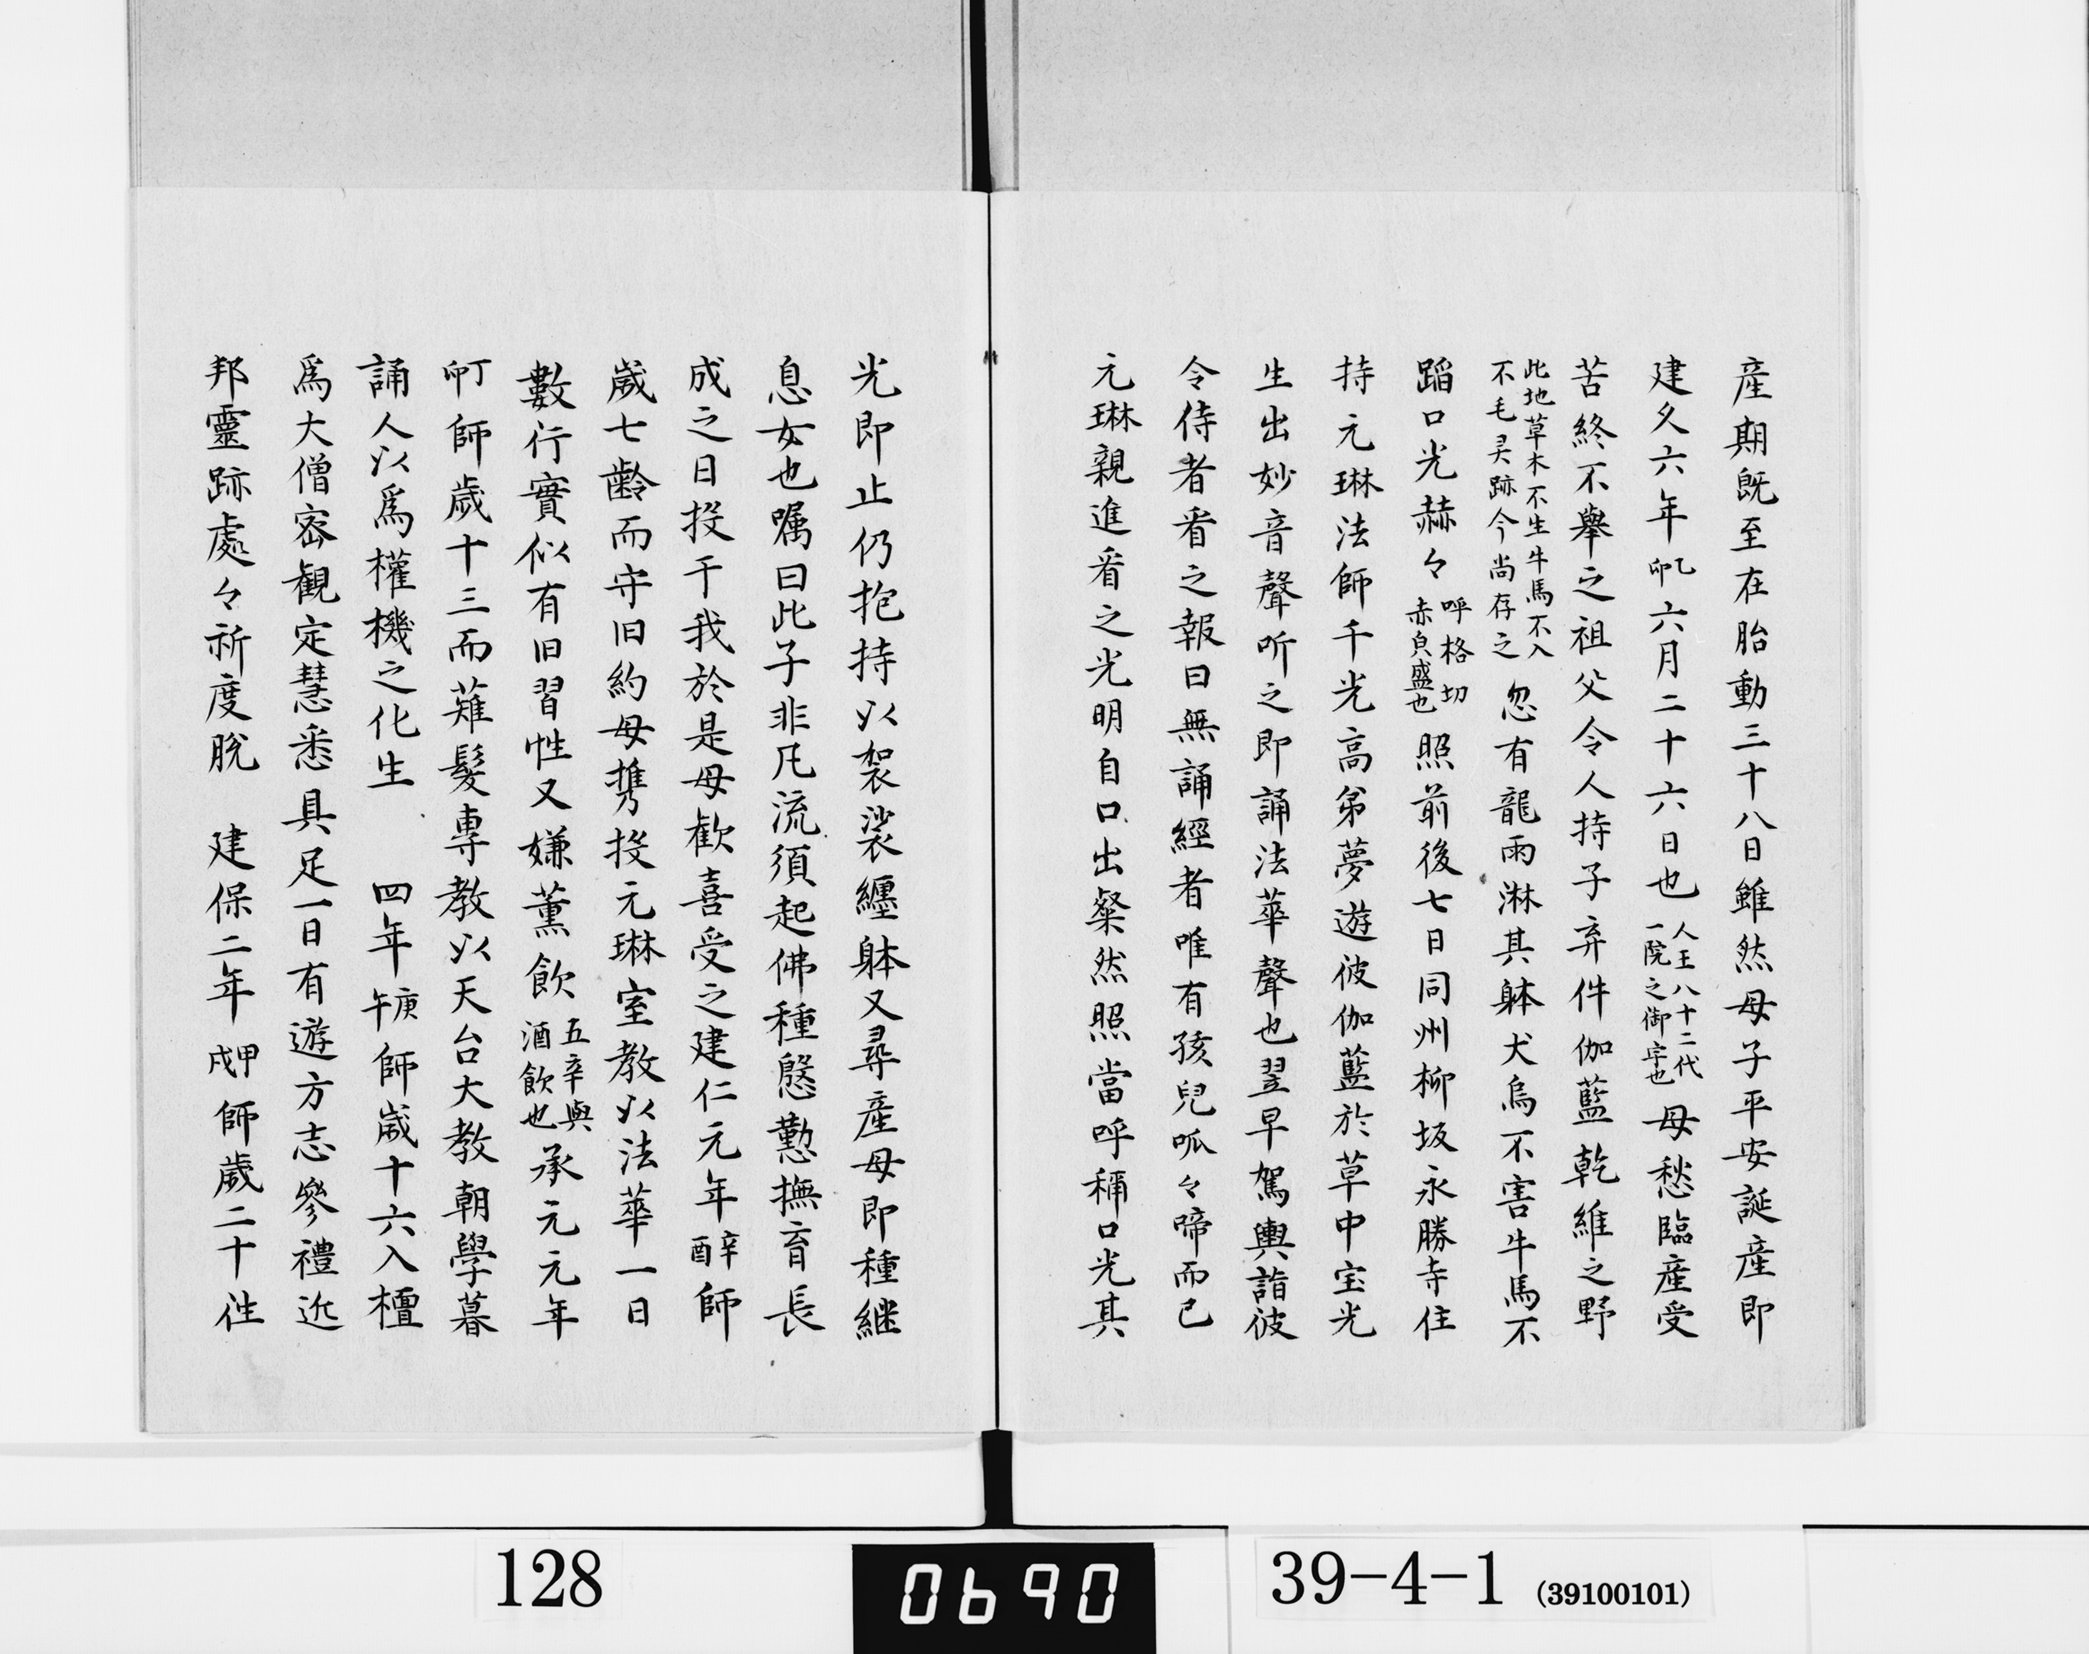 産期既至在胎動三十八日雖然母子平安誕産即
建久六年乙卯六月二十六日也人王八十二代一院之御宇也母愁臨産受
苦終不舉之祖父令人持子弃件伽藍乾維之野
此地草木不生牛馬不入不毛灵跡今尚存之忽有龍雨淋其躰犬烏不害牛馬不
蹈口光赫々呼格切赤皃盛也照前後七日同州柳坂永勝寺住
持元琳法師千光高弟夢遊彼伽藍於草中宝光
生出妙音聲听之即誦法華聲也翌早駕輿詣彼
令侍者看之報曰無誦經者唯有孩兒呱々啼而已
元琳親進看之光明自口出粲然照當呼稱口光其
光即止仍抱持以袈裟纏躰又尋産母即種継
息女也嘱曰此子非凡流須起佛種慇懃撫育長
成之日投于我於是母歡喜受之建仁元年辛酉師
歳七齢而守旧約母携投元琳室教以法華一日
數行實似有旧習性又嫌薫飲五辛與酒飲也承元元年
丁卯師歳十三而薙髮專教以天台大教朝學暮
誦人以爲權機之化生　四年庚午師歳十六入檀
爲大僧密観定慧悉具足一日有遊方志參禮近
邦靈跡處々祈度脱　建保二年甲戌師歳二十徃
128
0690
39-4-1 (39100101)